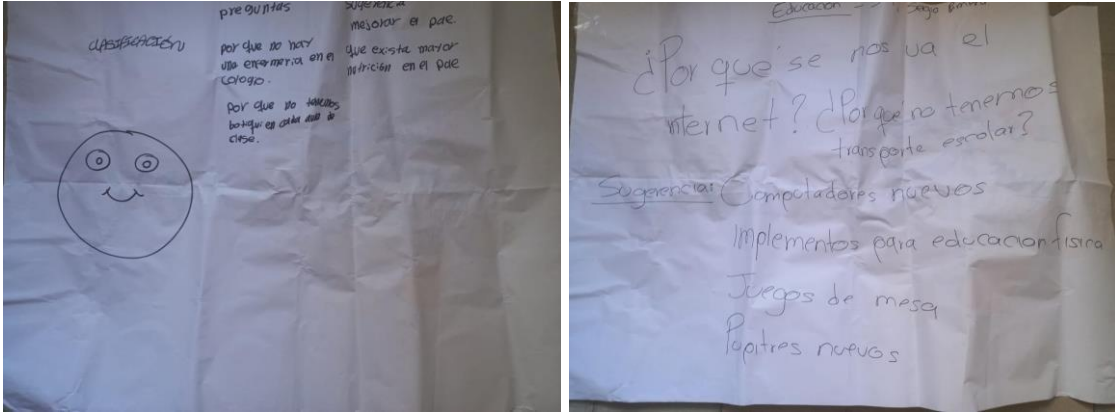 CLASIFICACIÓN
preguntas
por que no hay
una enfermeria en el
cologo.
por que no tenemos
botiquien en cada aula de
clase.
sugerencia
mejorar el pae.
que exista mayor
nutrición en el pae
Educacion
¿Por qué se nos va el
internet? ¿Porque no tenemos
transporte escolar?
Sugerencia: Computadores nuevos
Implementos para educacion fisica
Juegos de mesa
Pupitres nuevos